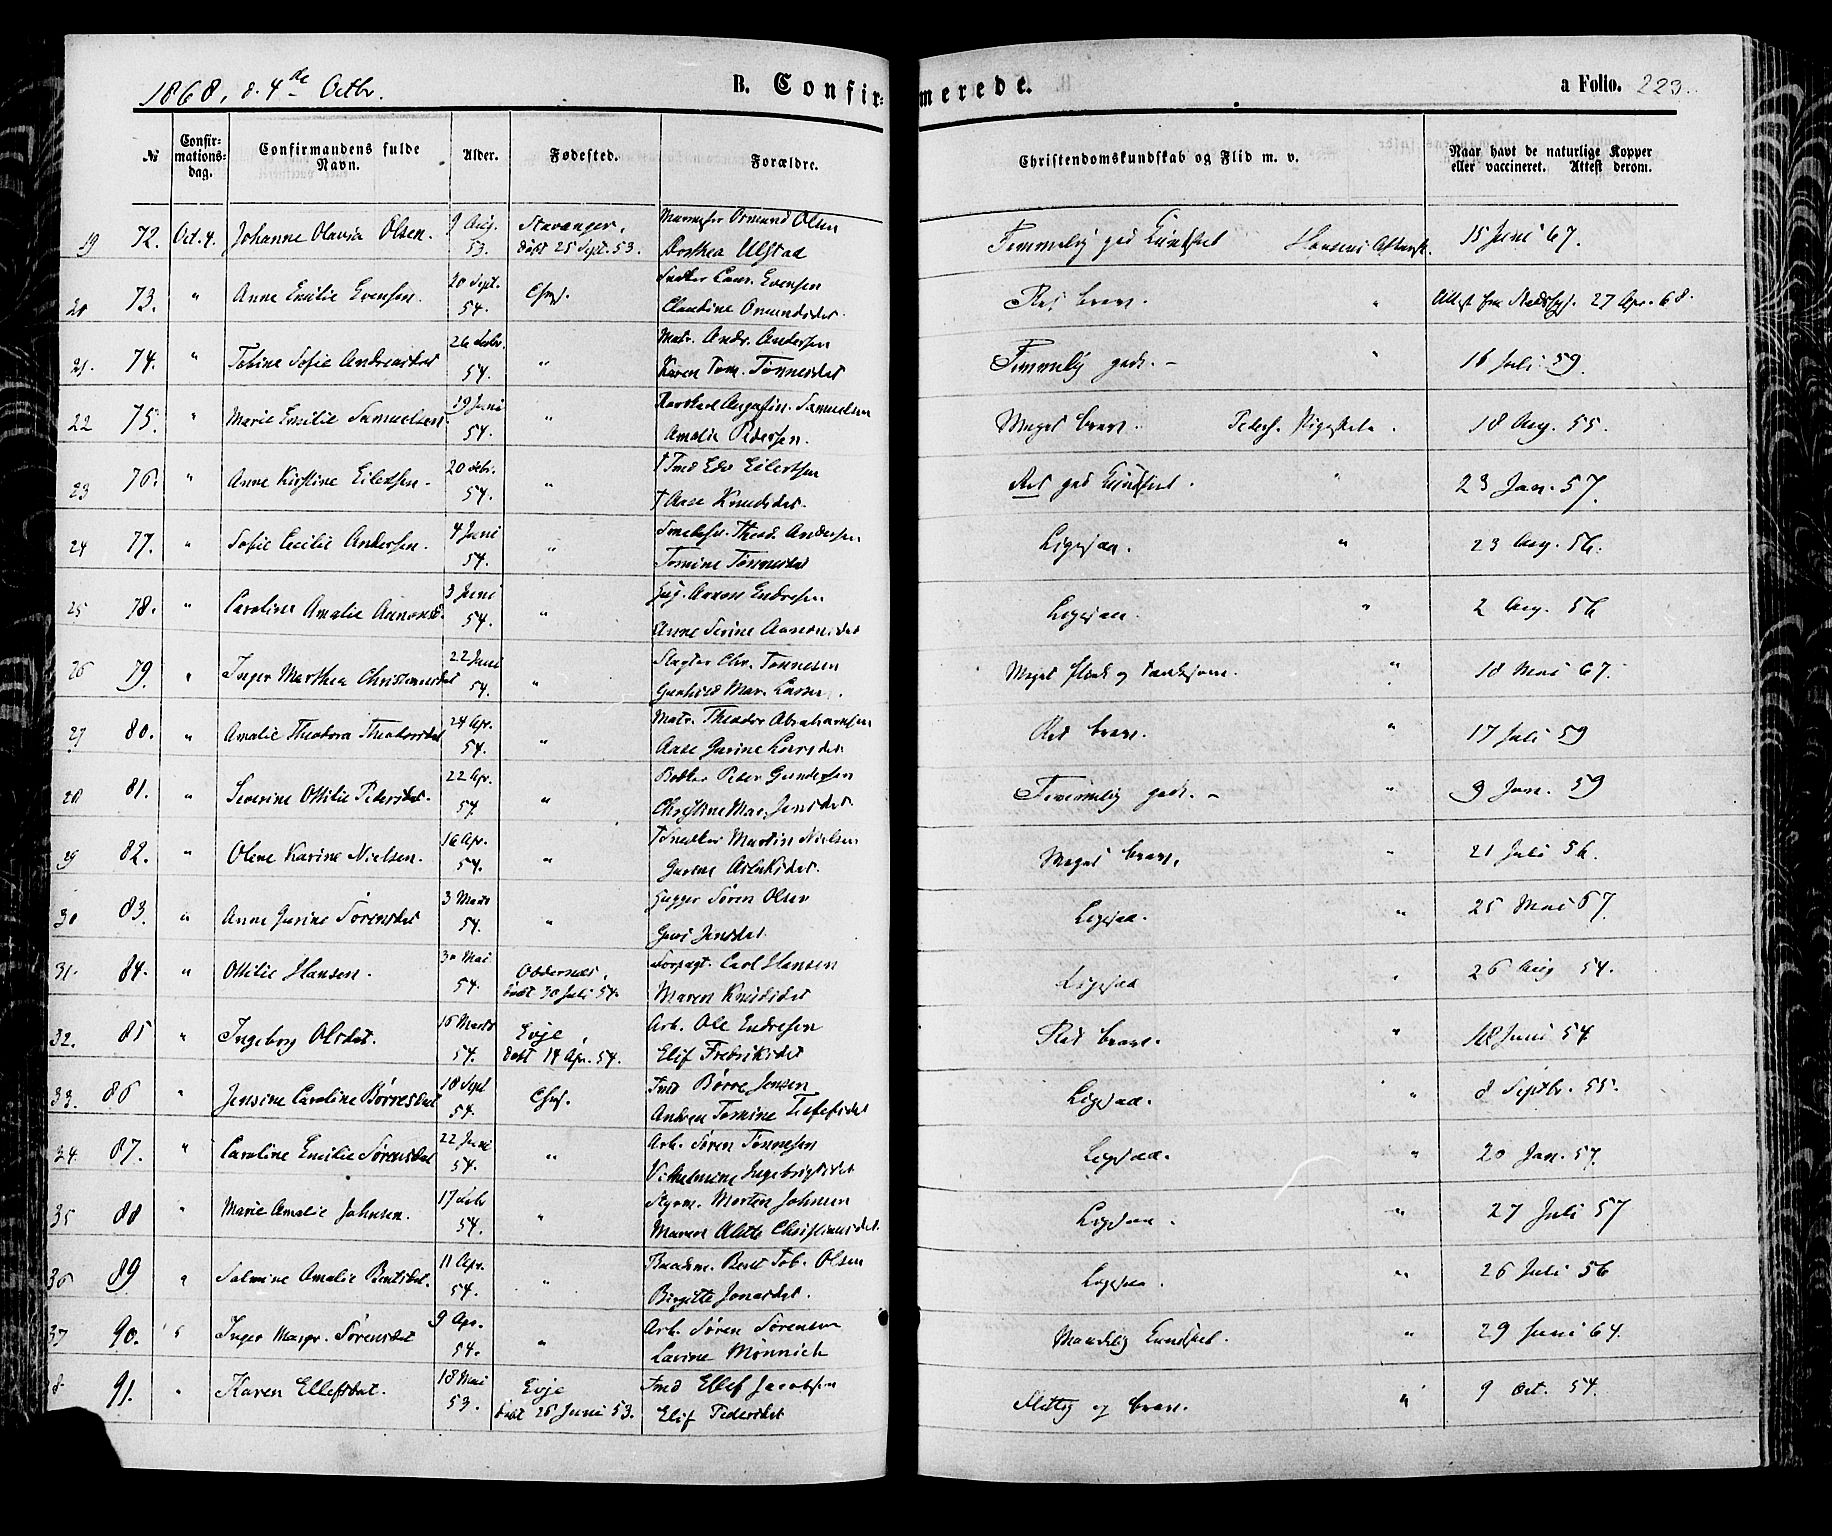 1868, d. 4de Octbr.
B. Confirmerede.
a Folio. 223.
№
Confirmationsdag.
Confirmandens fulde Navn.
Alder.
Fødested.
Forældre.
Christendomskundskab og Flid m. v.
Naar havt de naturlige Kopper eller vaccineret. Attest derom.
19 72. Oct. 4. Johanne Olavia Olsen. 9 Aug. 53. Stavanger, døbt 25 Sept. 53. Osmund Olsen Dorthea Ulstad Temmelig god Kundskab 15 Juni 67.
20 73. " Anne Emilie Evensen. 20 Sept. 54. Chrs. Evensen Claudine Omundsdat. Ret brav. " Attest fra 27 Apr. 68.
21. 74. " Tobine Sofie Andreasdat 26 Febr. 54. " Matr. Andr. Andersen Karen Tom. Tønnesdat Temmelig god. - " 16 Juli 59.
22 75. " Marie Emilie Samuelsen 19 Juni 54. " Samuelsen Amalie Pedersen. Meget brav. Pigeskole. 18 Aug. 55.
23 76. " Anne Kirstine Eilertsen. 20 Febr. 54. " † Eilertsen † Aase Knudsdat. Ret god Kundskab " 23 Jan. 57.
24 77. " Sofie Cecilie Andersen. 4 Juni 54. " Theod. Andersen Tomine Tønnesdat Ligesaa. " 23 Aug. 56.
25 78. " Caroline Amalie Aanonsd. 3 Juni 54. " Aanon Endresen Anne Serine Aanensdat Ligesaa. " 2 Aug. 56
26 79. " Inger Marthea Christiansdat 22 Juni 54. " Slagter Chr. Tønnesen Gunhild Mar. Lassen. Meget flink og " 18 Mai 67.
27 80. " Amalie Theodora Theodorsdat 24 Apr. 54. " Matr. Theodor Abrahamsen Aase Gurine Larsdat Ret brav. " 17 Juli 59
28 81. " Severine Ottilie Pedersdat. 22 Apr. 54. " Peder Gundersen Christine Mar. Jensdat Temmelig god. - " 9 Jan. 59
29 82. " Olene Karine Nielsen. 16 Apr. 54. " † Snedker Martin Nielsen Gurine Aslaksdat. Meget brav. " 21 Juli 56.
30 83. " Anne Gurine Sørensdat 3 Marts 54. " Søren Olsen Guri Jensdat. Ligesaa. " 25 Mai 67.
31. 84. " Ottilie Hansen. 30 Mai 54. Oddernæs, døbt 30 Juli 54. Carl Hansen Maren Knudsdat Ligesaa " 26 Aug 54.
32. 85 " Ingeborg Olsdat. 16 Marts 54. Evje, døbt 14 Apr. 54. Arb. Ole Endresen Elif Fredriksdat Ret brav. " 18 Juni 54.
33. 86 " Jensine Caroline Børresdat 18 Sept 54. Chrs. Børre Jensen Andrea Tomine Ligesaa. " 8 Septbr. 55.
34. 87. " Caroline Emilie Sørensdat 22 Juni 54. " Arb. Søren Tønnesen Vilhelmine Ingebrigtsdat Ligesaa. " 20 Jan. 57.
35 88 " Marie Amalie Johnsen. 17 Feb 54. " Styrm. Morten Johnsen Maren Christiansdat. Ligesaa. " 27 Juli 57
36 89 " Salmine Amalie Berntsdat. 11 Apr. 54. " Bernt Tob. Olsen Birgitte Jonasdat. Ligesaa. " 26 Juli 56
37 90. " Inger Margr. Sørensdat 9 Apr. 54. " Arb. Søren Sørensen Lavine Mønnich Maadelig Kundskab. " 29 Juni 64.
38 91. " Karen Ellefsdat. 18 Mai 53. Evje døbt 26 Juni 53. Ellef Jacobsen Elif Pedersdat Flittig og brav. " 9 Oct. 54.